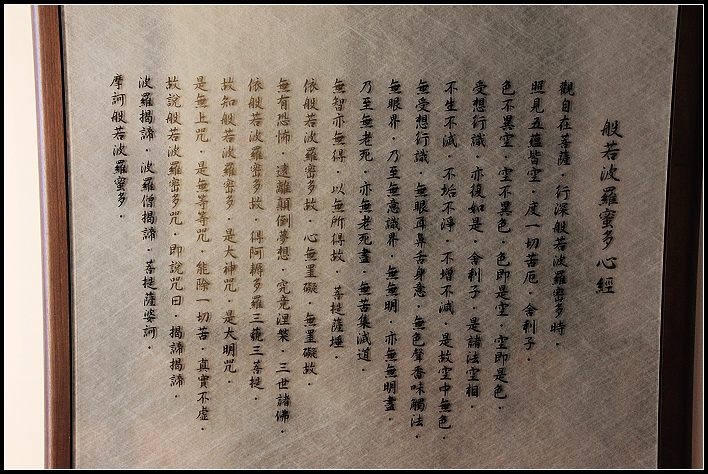 般若波羅蜜多心經
觀自在菩薩．行深般若波羅密多時．
照見五蘊皆空．度一切苦厄．舍利子．
色不異空．空不異色．色即是空．空即是色．
受想行識．亦復如是．舍利子．是諸法空相．
不生不滅．不垢不淨．不增不減．是故空中無色．
無受想行識．無眼耳鼻舌身意．無色聲香味觸法．
無眼界．乃至無意識界．無無明．亦無無明盡．
乃至無老死．亦無老死盡．無苦集滅道．
無智亦無得．以無所得故．菩提薩埵．
依般若波羅密多故．心無罣礙．無罣礙故．
無有恐怖．遠離顛倒夢想．究竟涅槃．三世諸佛．
依般若波羅密多故．得阿耨多羅三藐三菩提．
故知般若波羅密多．是大神咒．是大明咒．
是無上咒．是無等等咒．能除一切苦．真實不虛．
故說般若波羅密多咒．即說咒曰．揭諦揭諦．
波羅揭諦．波羅僧揭諦．菩提薩婆訶．
摩訶般若波羅蜜多．